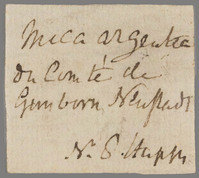 Mica argentea
du Comté de
Gimborn Neustadt